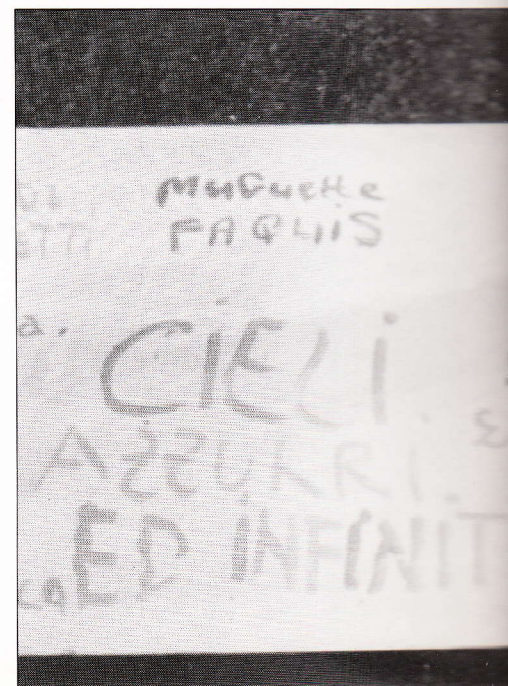 MuGuette
FAQUIS
a.
CiELi.
AZZURRI.
ED iNFiNIT